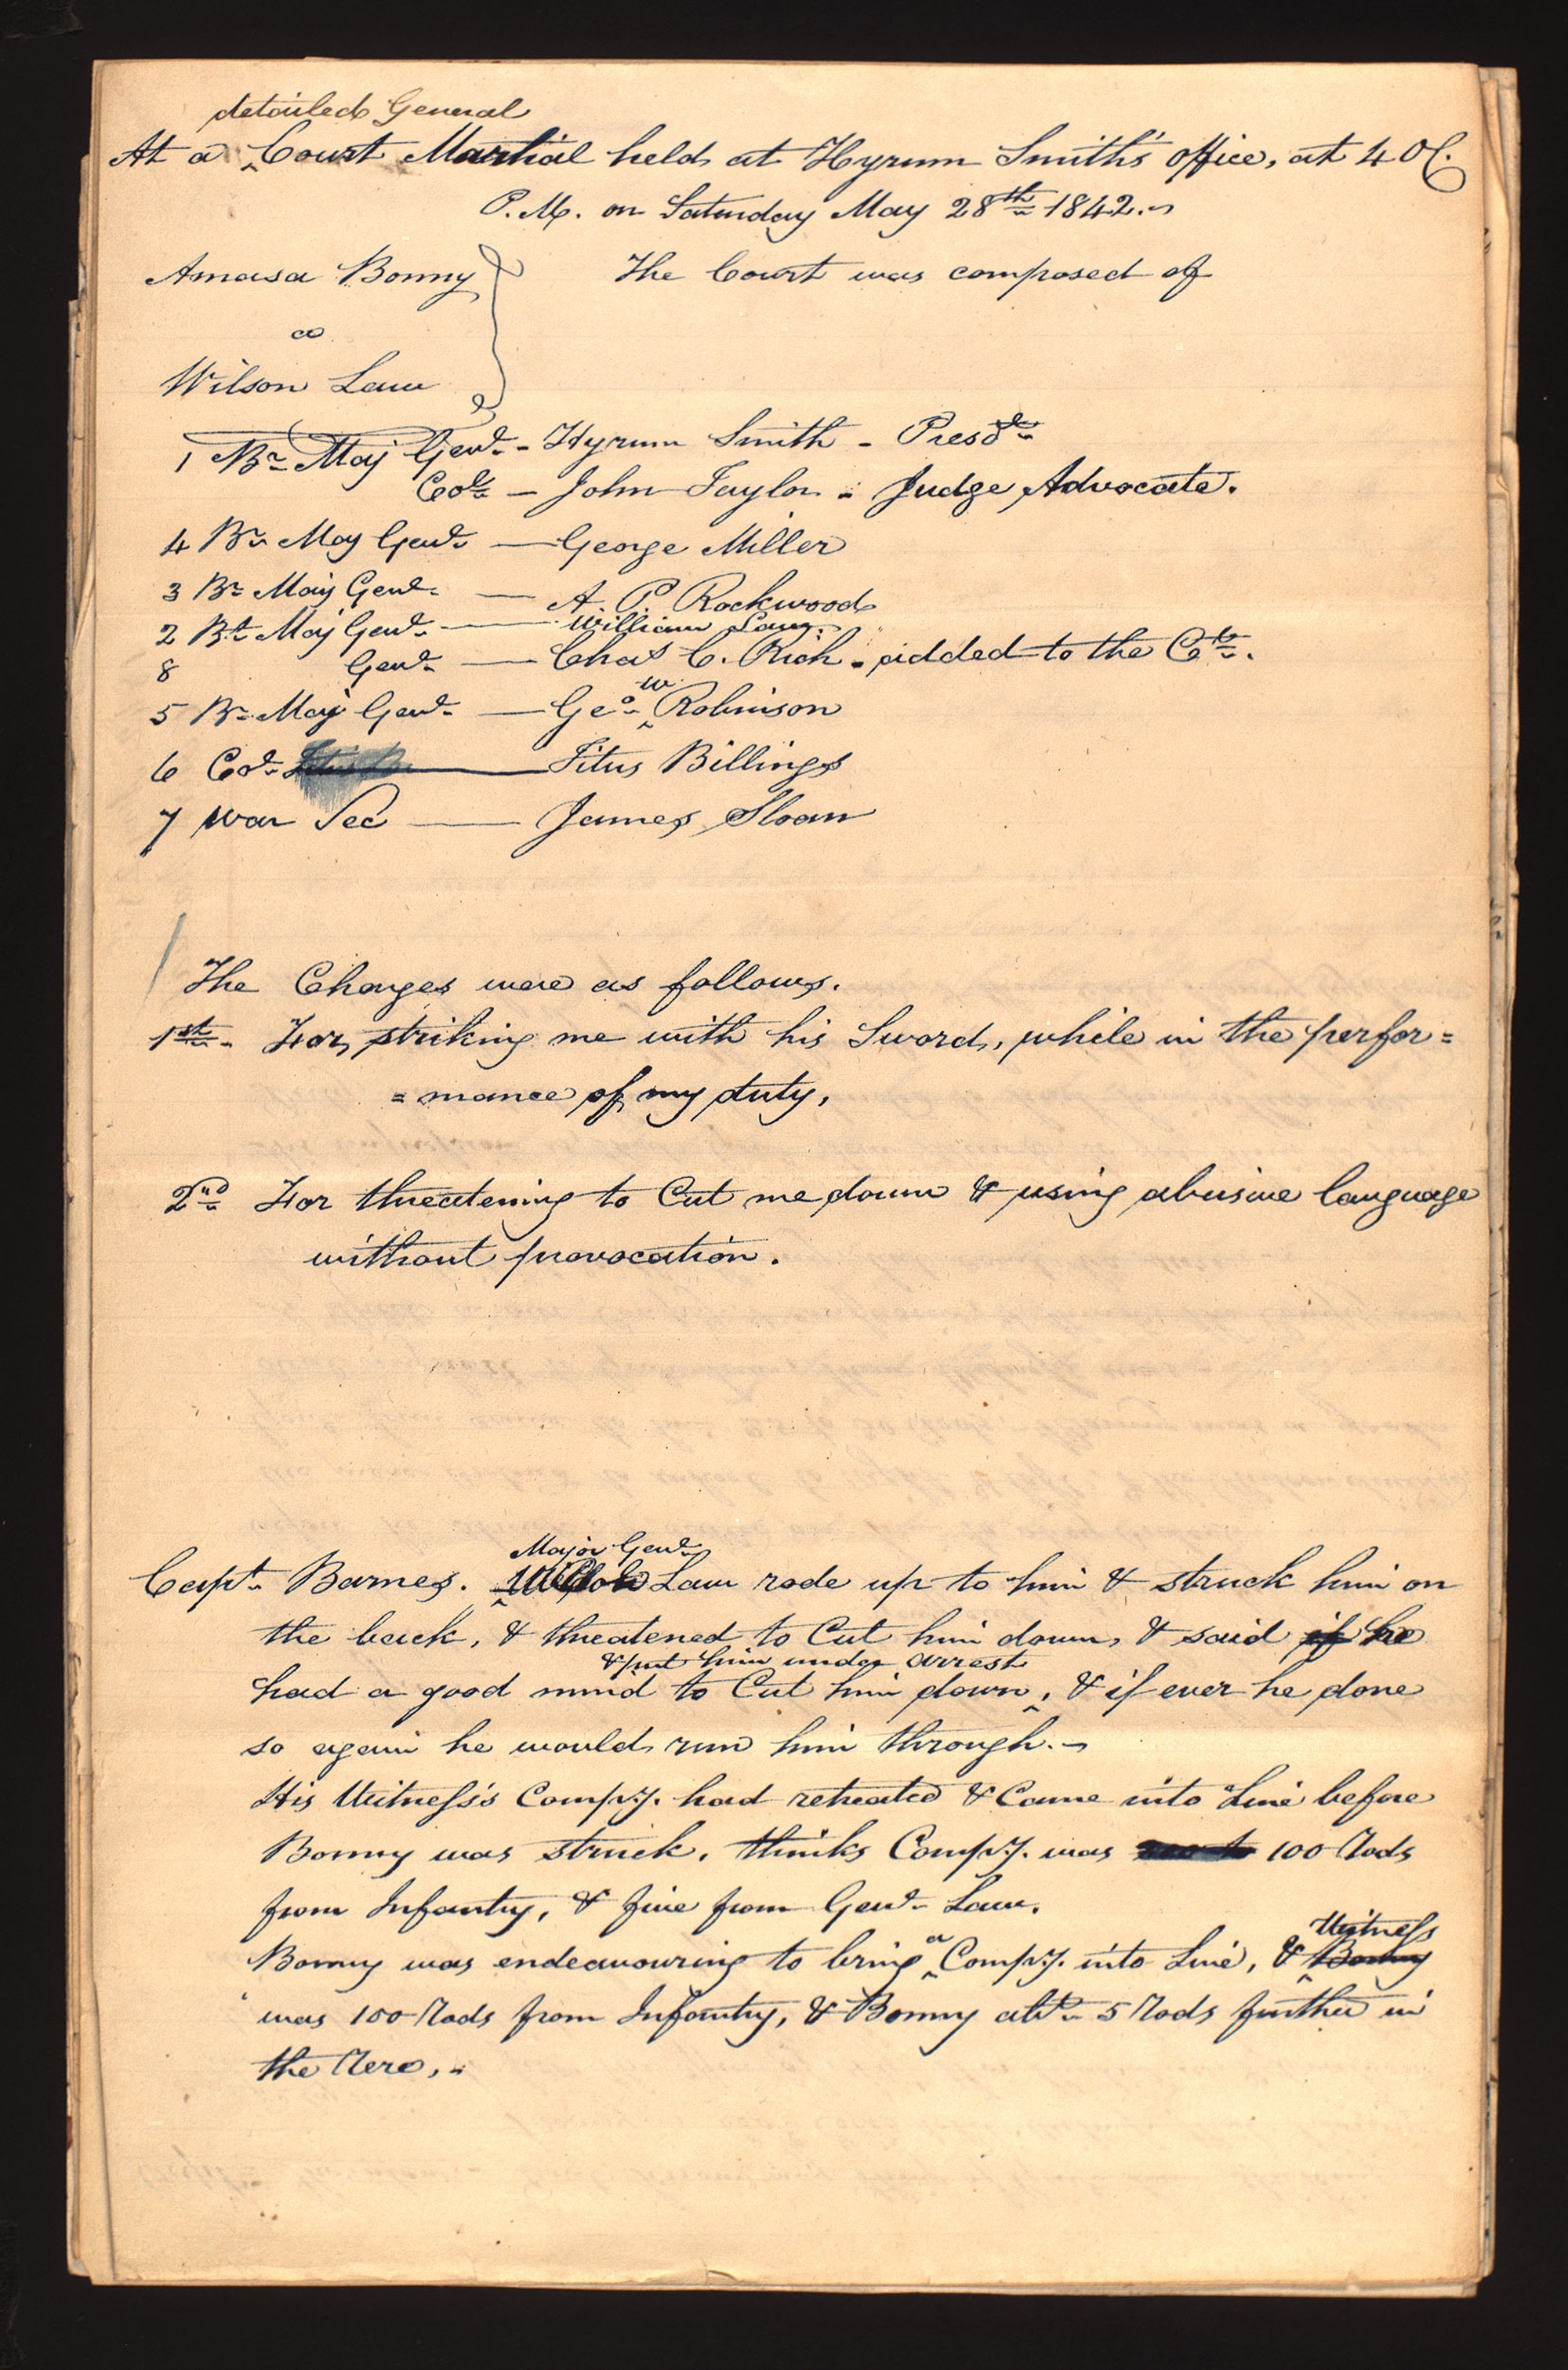 detailed General
At a ‸Court Martial held at Hyrum Smith's office, at 4 OC.
P.M. on Saturday May 28th 1842.
Amasa Bonny
The Court was composed of
Wilson Law
1 Br. Maj Genl. - Hyrum Smith - Presdt.
Col. - John Taylor - Judge Advocate.
4 Br. Maj Genl. — George Miller
3 Br. Maj Genl. — A. P. Rockwood
2 Bt. Maj Genl. — William Law.
8 Genl. — Chas C. Rich - added to the Ct.
w
5 Br. Maj Genl. — Geo. ‸Robinson
6 Col. Titus B — Titus Billings
7 War Sec — James Sloan
The Charges were as follows.
1st. For, striking me with his Sword, while in the perfor=
=mance of my duty,
2nd For threatening to Cut me down & using abusive language
without provocation.
Major Genl.
Capt. Barnes. ‸Wilson Law rode up to him & struck him on
the back, & threatened to Cut him down, & said if he
& put him under arrest
had a good mind to Cut him down‸, & if ever he done
so again he would run him through.
His Witness's Compy. had retreated & Came into Line before
Bonny was struck. thinks Compy. was 100 Rods
from Infantry, & five from Genl. Law.
a Witness
Bonny was endeavouring to bring ‸Compy. into Line, & ‸Bonny
was 100 Rods from Infantry, & Bonny abt. 5 Rods further in
the Rere.